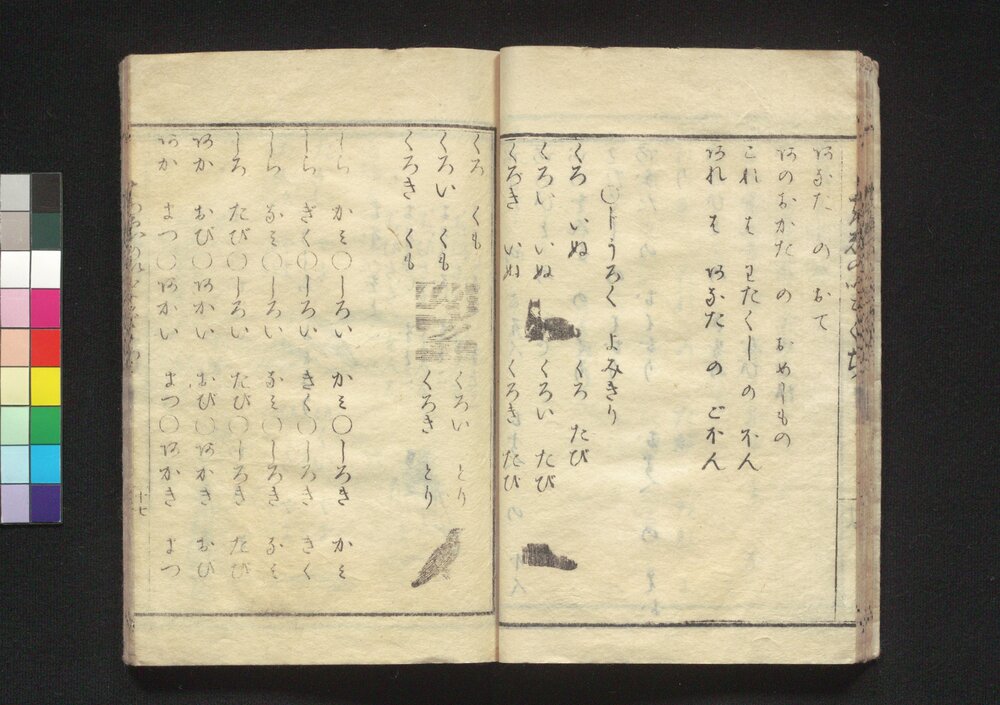 あなた の おて
あのおかた の おめしもの
これ は わたくしの ほん
あれ は あなた の ごほん
〇ドうろく よみきり
くろ いぬ くろ たび
くろい いぬ くろい たび
くろき いぬ くろきたび
くろ くも
くろい くも くろい とり
くろき くも くろき とり
しら かみ〇しろい かみ〇しろき かみ
しら ぎく〇しろい きく〇しろき きく
しろ たび〇しろい たび〇しろき たび
あか おび〇あかい おび〇あかき おび
あか まつ〇あかい まつ〇あかき まつ
十七